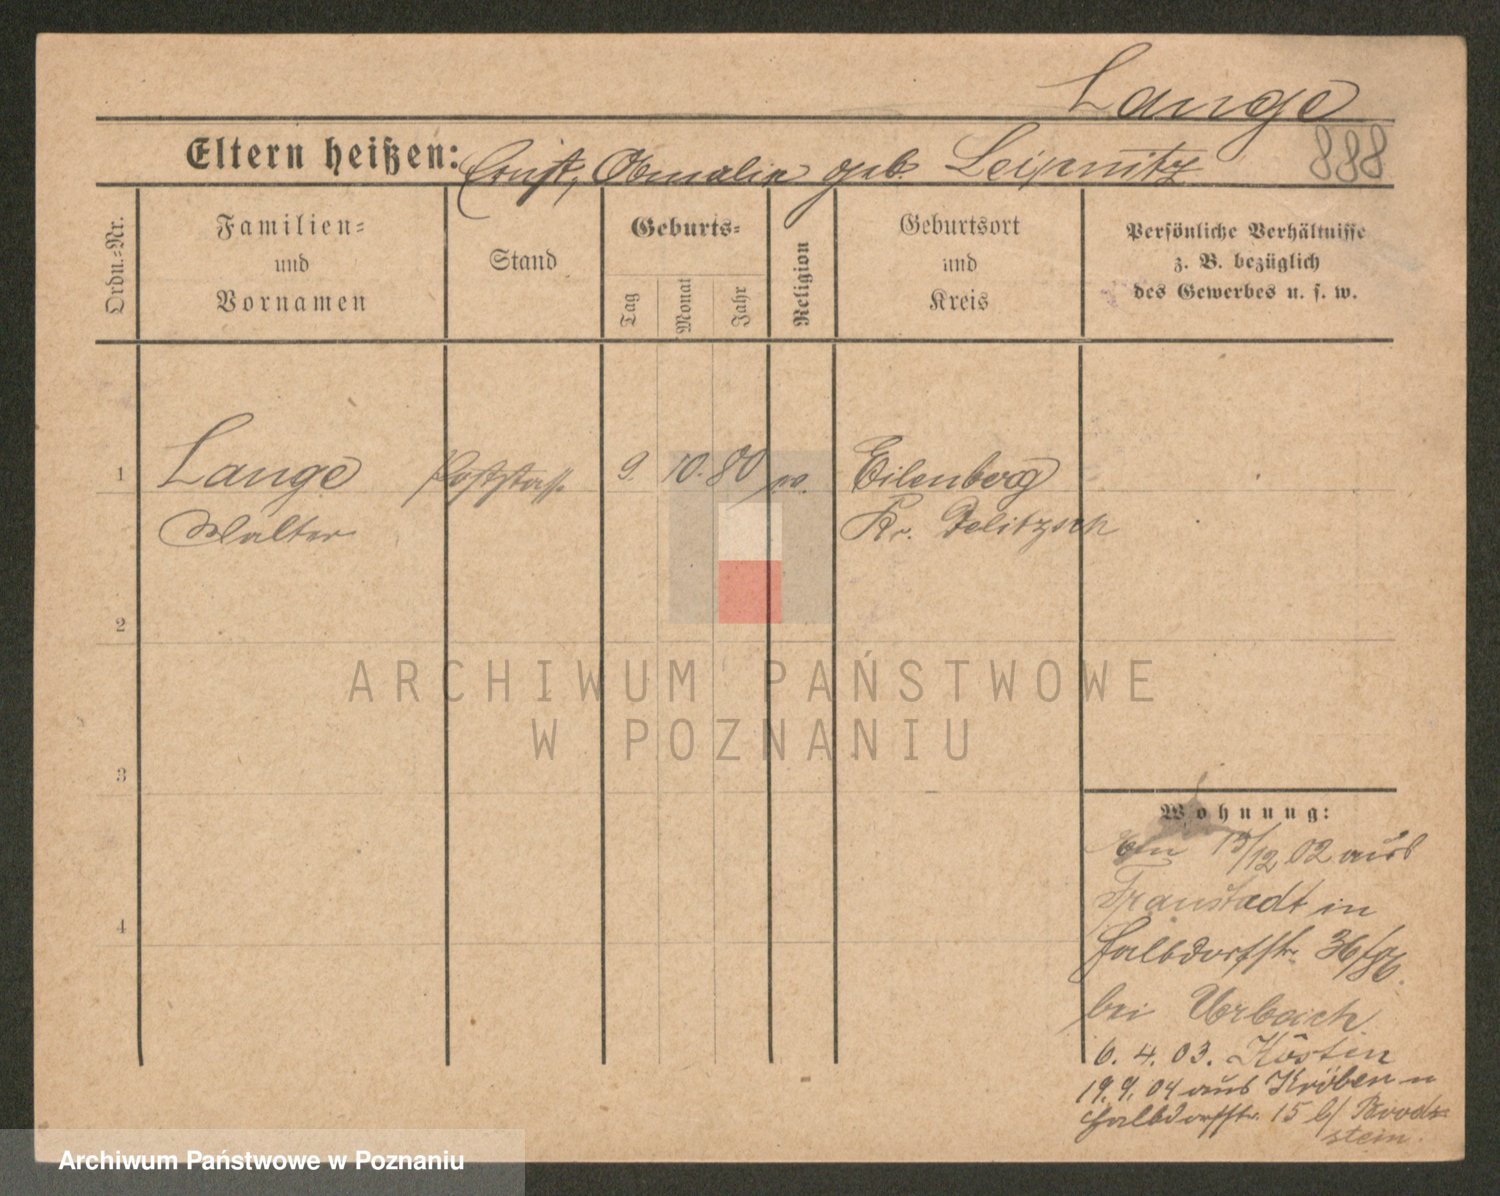 Lange
888
Eltern heißen: Ernst, Amalie geb. Leipnitz
Ordn.-Nr.
Familien-
und
Vornamen
Stand
Geburts-
Tag
Monat
Jahr
Religion
Geburtsort
und
Kreis
Persönliche Verhältnisse
z. B. bezüglich
des Gewerbes u. s. w.
1 Lange 9. 10. 80 Eilenberg
Walter Kr. Delitzsch
2
3
4
ARCHIWUM PAŃSTWOWE
W POZNANIU
Wohnung:
12 02 aus
Fraustadt in
Halbdorfstr. 36
bei Urbach
6. 4. 03. Köstin
19. 9. 04 aus Kröben n
Halbdorfstr. 15 b/ Broodz-
stein.
Archiwum Państwowe w Poznaniu